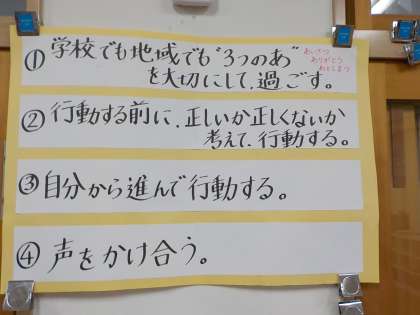 ① 学校でも地域でも“3つのあ”
あいさつ
ありがとう
あとしまつ
を大切にして、過ごす。
② 行動する前に、正しいか正しくないか
考えて、行動する。
③ 自分から進んで行動する。
④ 声をかけ合う。